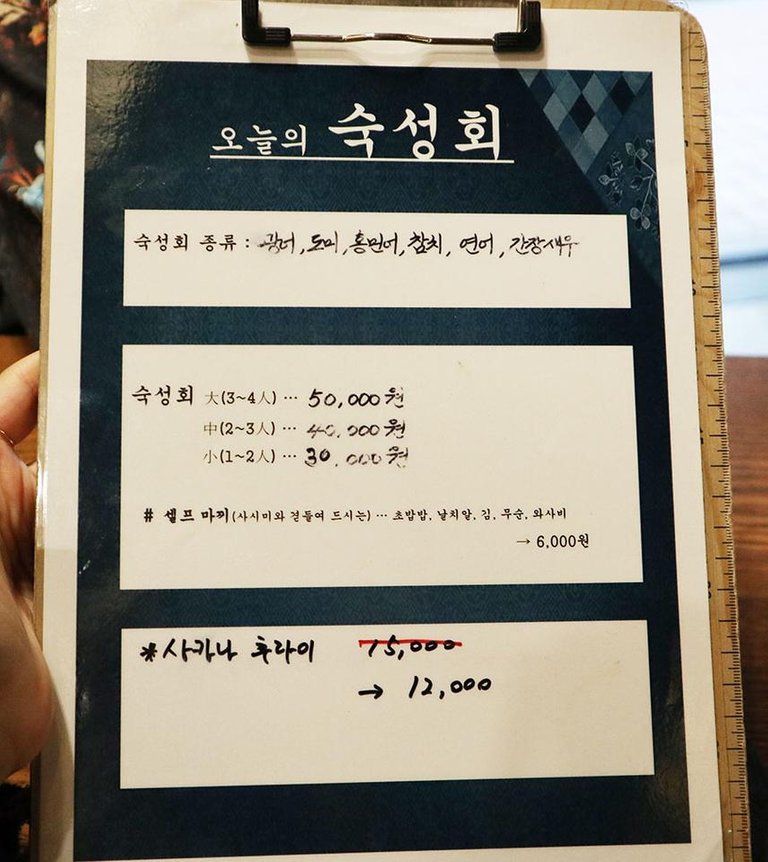 오늘의 숙성회
숙성회 종류 : 광어, 도미, 홍민어, 참치, 연어, 간장새우
숙성회 大(3~4人) ··· 50,000원
中(2~3人) ··· 40,000원
小(1~2人) ··· 30,000원
# 셀프 마끼(사시미와 곁들여 드시는) ··· 초밥밥, 날치알, 김, 무순, 와사비
→ 6,000원
*사카나 후라이 15,000
→ 12,000